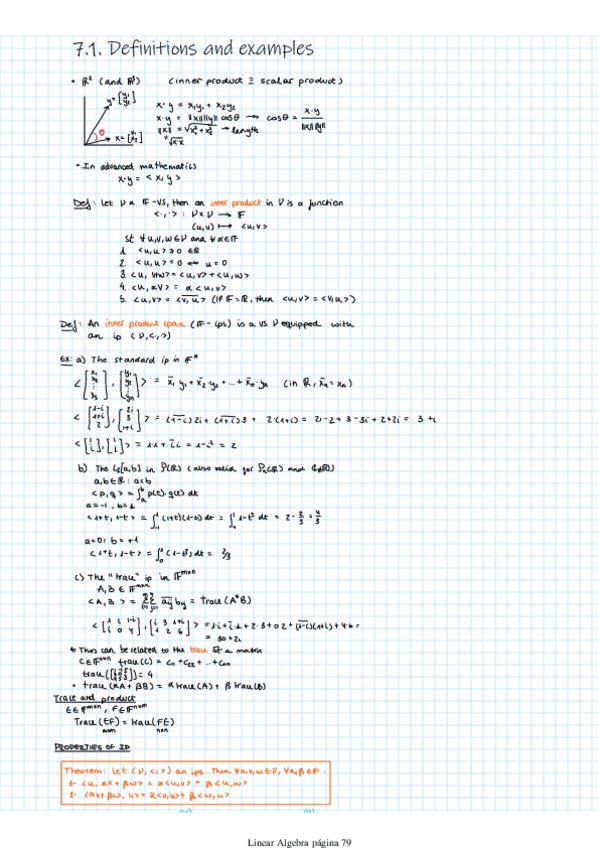 7.1. Definitions and examples
• ℝ² (and ℝ³) (inner product ≡ scalar product)
y = [y₁ y₂]
θ
x = [x₁ x₂]
x·y = x₁y₁ + x₂y₂
x·y = ||x||||y|| cosθ → cosθ = x·y / ||x||||y||
||x|| = √(x₁² + x₂²) → length
√(x·x)
• In advanced mathematics
x·y = <x, y>
Def: Let V a 𝔽-VS, then an inner product in V is a function
<·,·> : V×V → 𝔽
(u,v) ↦ <u,v>
st ∀u,v,w∈V and ∀α∈𝔽
1. <u,u> ≥ 0 ∈ℝ
2. <u,u> = 0 ↔ u = 0
3. <u, v+w> = <u,v> + <u,w>
4. <u, αv> = α<u,v>
5. <u,v> = <v,u>‾ (if 𝔽=ℝ, then <u,v> = <v,u>)
Def: An inner product space (𝔽-ips) is a VS V equipped with
an ip (V,<·,·>)
Ex: a) The standard ip in 𝔽ⁿ
= x̄₁y₁ + x̄₂·y₂ + ... + x̄ₙ·yₙ
= (1-i)‾ 2i + (1+i)‾ 3 + 2·(1+i) = 2i-2+3-3i+2+2i = 3+i
= 1-i² = 2
b) The L₂[a,b] in P(ℝ)
a,b∈ℝ: a<b
<p,q> = ∫ₐᵇ p(t)·q(t) dt
a=-1, b=1
<1+t, 1-t> = ∫₋₁¹ (1+t)(1-t) dt = ∫₋₁¹ 1-t² dt = 2 - 2/3 = 4/3
a=0, b=+1
<1+t, 1-t> = ∫₀¹ (1-t²) dt = 2/3
c) The "trace" ip in 𝔽ᵐˣⁿ
A,B ∈ 𝔽ᵐˣⁿ
= trace(A*B)
= 30+2i
* This can be related to the trace of a matrix
C∈𝔽ⁿˣⁿ trace(C) = c₁₁+c₂₂+...+cₙₙ
= 4
• trace(αA+βB) = α trace(A) + β trace(B)
Trace and product
E∈𝔽ᵐˣⁿ, F∈𝔽ⁿˣᵐ
Trace(EF) = trace(FE)
mxm nxn
PROPERTIES OF IP
Theorem: Let (V,<,>) an ips. Then ∀u,v,w∈V, ∀α,β∈𝔽.
1- <u, αv+βw> = α<u,v> + β<u,w>
2- <αv+βw, u> = ᾱ<v,u> + β̄<w,u>
Linear Algebra página 79